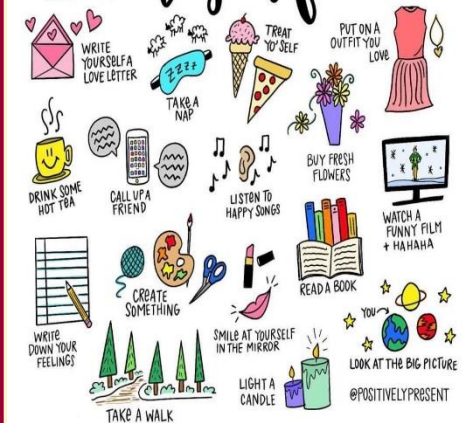 WRITE
YOURSELF A
LOVE LETTER
ZZZZ
TAKE A
NAP
TREAT
YO' SELF
PUT ON A
OUTFIT YOU
LOVE
DRINK SOME
HOT TEA
CALL UP A
FRIEND
LISTEN TO
HAPPY SONGS
BUY FRESH
FLOWERS
WATCH A
FUNNY FILM
+ HAHAHA
WRITE
DOWN YOUR
FEELINGS
CREATE
SOMETHING
SMILE AT YOURSELF
IN THE MIRROR
READ A BOOK
YOU
LOOK AT THE BIG PICTURE
TAKE A WALK
LIGHT A
CANDLE
@POSITIVELYPRESENT